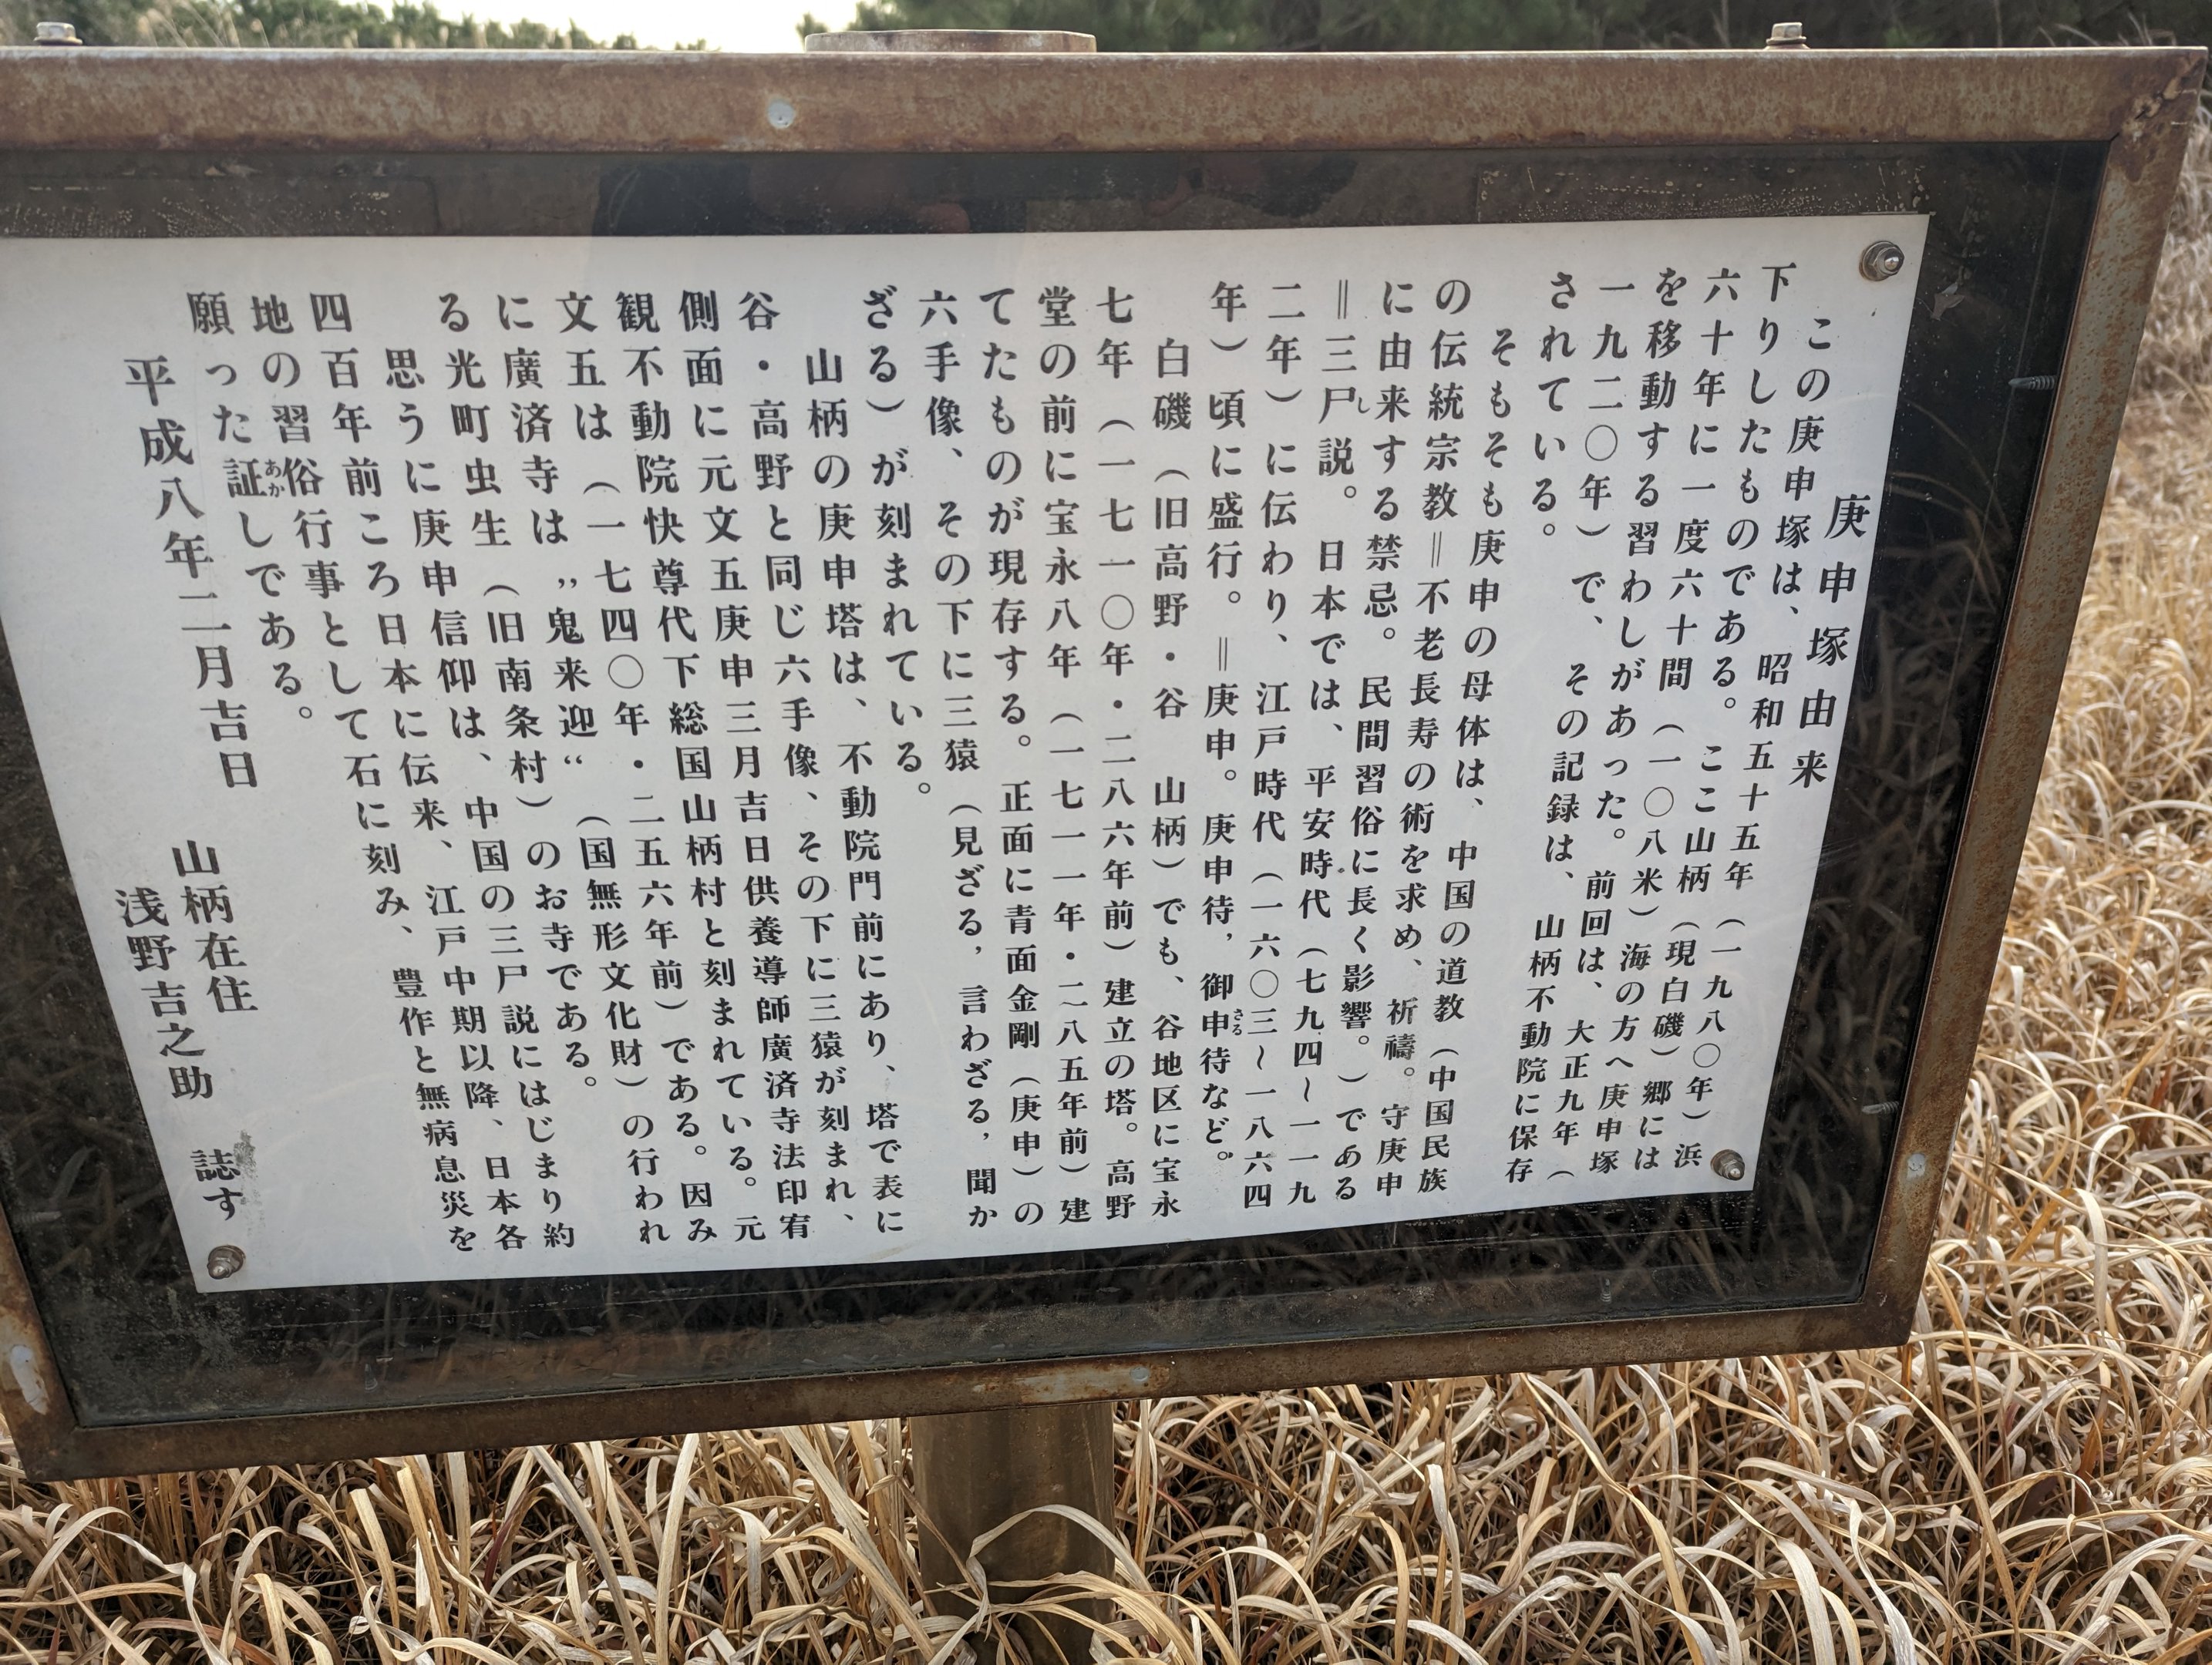 庚申塚由来
この庚申塚は、昭和五十五年（一九八〇年）浜
下りしたものである。ここ山柄（現白磯）郷には
六十年に一度六十間（一〇八米）海の方へ庚申塚
を移動する習わしがあった。前回は、大正九年（
一九二〇年）で、その記録は、山柄不動院に保存
されている。
そもそも庚申の母体は、中国の道教（中国民族
の伝統宗教‖不老長寿の術を求め、祈禱。守庚申
に由来する禁忌。民間習俗に長く影響。）である
‖三尸し説。日本では、平安時代（七九四～一一九
二年）に伝わり、江戸時代（一六〇三～一八六四
年）頃に盛行。‖庚申。庚申待，御申さる待など。
白磯（旧高野・谷　山柄）でも、谷地区に宝永
七年（一七一〇年・二八六年前）建立の塔。高野
堂の前に宝永八年（一七一一年・二八五年前）建
てたものが現存する。正面に青面金剛（庚申）の
六手像、その下に三猿（見ざる，言わざる，聞か
ざる）が刻まれている。
山柄の庚申塔は、不動院門前にあり、塔で表に
谷・高野と同じ六手像、その下に三猿が刻まれ、
側面に元文五庚申三月吉日供養導師廣済寺法印宥
観不動院快尊代下総国山柄村と刻まれている。元
文五は（一七四〇年・二五六年前）である。因み
に廣済寺は〝鬼来迎〟（国無形文化財）の行われ
る光町虫生（旧南条村）のお寺である。
思うに庚申信仰は、中国の三尸説にはじまり約
四百年前ころ日本に伝来、江戸中期以降、日本各
地の習俗行事として石に刻み、豊作と無病息災を
願った証あかしである。
平成八年二月吉日
山柄在住
浅野吉之助　誌す